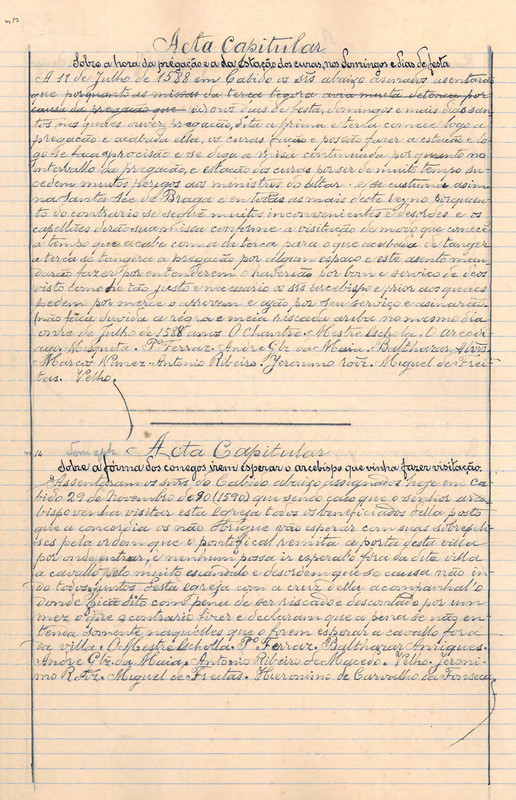 nº 15
Acta Capitular
Sobre a hora da pregação e a da estação dos curas, nos domingos e dias de festa
A 11 de Julho de 1588 em Cabido os srs abaixo asinados asentarão
que porquanto as missas da terca tegora avia muita detença por
causa da pregação que (sic) nos dias de festa, domingos e mais dias san-
tos, nos quaes ouver pregação, dita a prima e terca comece logo a
pregação e acabada ella, os curas fação e posão fazer a estação e lo-
go se faca procisão e se diga a missa continuada, porquanto no
intervallo da pregação, e estacão dos curas por ser de muito tempo su-
cedem muitos perigos aos ministros do altar. e se custuma asim
na Santa Sée de Braga e em todas as mais deste reyno porquan-
to do contrario se seguẽ muitos inconvenientes e desordẽs e os
capellães dirão sua missa conforme a visitação de modo que comece
a tempo que acabe com a da terca para o que acabada de tanger
a terca se tangera a pregação por algum espaço e este asento man-
darão fazer por entenderem o haverão por bom e serviço de deos
visto como he tão justo e necesario os srs arcebispo e prior aos quaes
pedem por merce o aprovem e ajão por seu serviço e asinarão.
não faca duvida a regra e meia riscada ariba no mesmo dia
onze de Julho de 1588 anos. O Chantre. Mestre Schola. O Arcedi-
ago Mesquita. Pº Ferraz. Andre Glz da Maia. Balthazar Alvrs.
Marcos Nunez. Antonio Ribeiro. Jeronimo roiz. Miguel de Frei-
tas. Velho.
nº 16
Acta Capitular
Sobre a fórma dos conegos irem esperar o arcebispo que vinha fazer visitação.
"Assentaram os snrs do Cabido abaixo assignados hoje em ca-
bido 29 de Novembro de 90 (1590) que sendo caso que o senhor arce-
bispo venha visitar esta igreja todos os beneficiados della posto
que a concordia os não obrigue vão esperar com suas sobrepeli-
ses pela ordem que o pontifical remita a porta desta villa
por onde entrar, e nenhum possa ir esperalo fora da dita villa
a cavallo pelo muito escandalo e desordem que se causa não in-
do todos juntos desta igreja com a cruz della acompanhal'o
donde fica dito com pena de ser riscado e descontado por um
mez o que o contrario fizer e declaram que a pena se não en-
tenda somente naquelles que o forem esperar a cavallo fora
da villa. O Mestre Scholla. Pº Ferraz. Balthazar Anriques.
Andre Glz da Maia. Antonio Ribeiro de Macedo. Velho. Jeroni-
mo Roiz. Miguel de Freitas. Hieronimo de Carvalho da Fonseca.